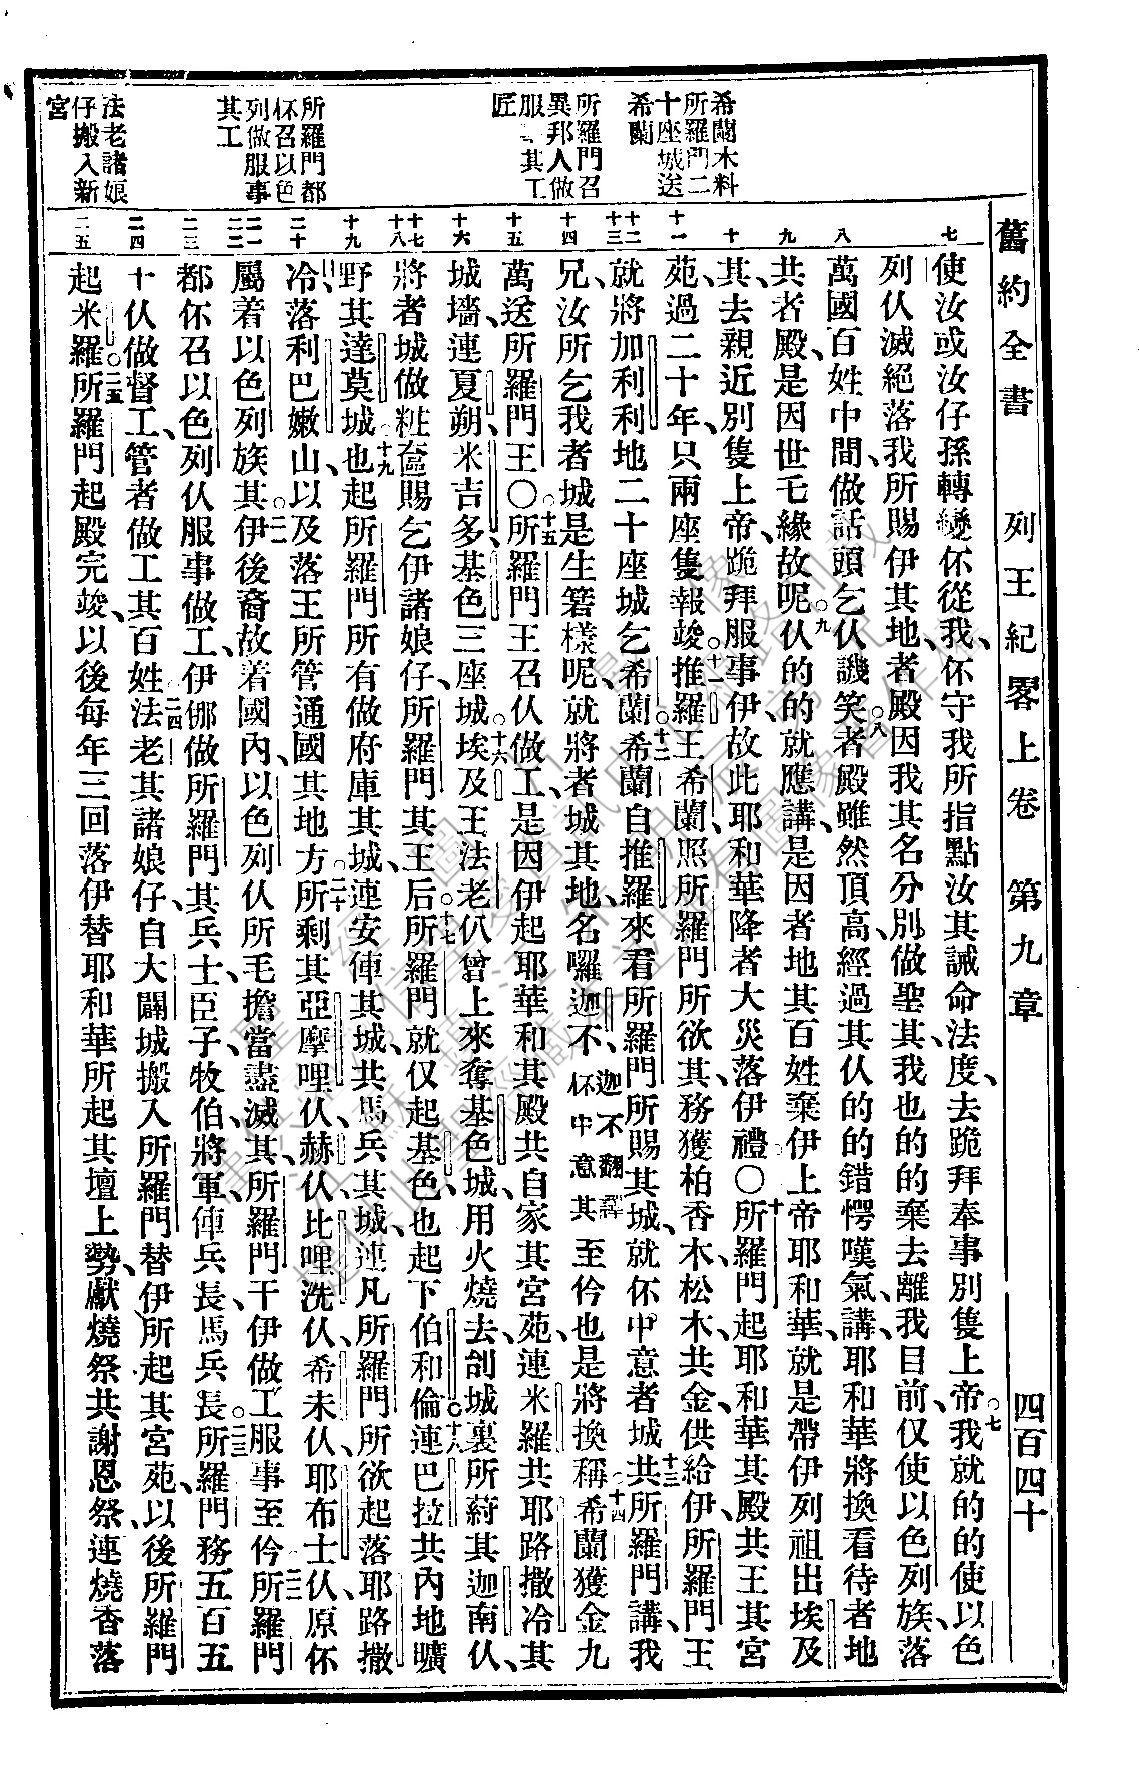 舊約全書　列王紀畧上卷　第九章　四百四十
希蘭木料
所羅門二
十座城送
希蘭
所羅門召
異邦人做
服　其工
匠
所羅門都
伓召以色
列做服事
其工
法老諸娘
仔搬入新
宮
七
八
九
十
十一
十二
十三
十四
十五
十六
十七
十八
十九
二十
二一
二二
二三
二四
二五
使汝或汝仔孫轉變伓從我、伓守我所指點汝其誡命法度、去跪拜奉事別隻上帝、○七我就的的使以色
列仫滅絕落我所賜伊其地、者殿因我其名分別做聖其、我也的的棄去離我目前、仅使以色列族落
萬國百姓中間、做話頭乞仫譏笑、○八者殿雖然頂高、經過其仫的的錯愕嘆氣、講、耶和華將換看待者地
共者殿、是因世乇緣故呢、○九仫的的就應講、是因者地其百姓棄伊上帝耶和華、就是帶伊列祖出埃及
其、去親近別隻上帝、跪拜服事伊、故此耶和華降者大災落伊禮○○十所羅門起耶和華其殿共王其宮
苑、過二十年、只兩座隻報竣、○十一推羅王希蘭、照所羅門所欲其、務獲柏香木、松木、共金、供給伊、所羅門王
就將加利利地二十座城乞希蘭、○十二希蘭自推羅來、看所羅門所賜其城、就伓中意者城、○十三共所羅門講、我
兄、汝所乞我者城、是生簭樣呢、就將者城其地、名囉迦不、迦不翻譯伓中意其至伶也是將換稱、○十四希蘭獲金九
萬送所羅門王○○十五所羅門王召仫做工、是因伊起耶華和其殿、共自家其宮苑、連米羅、共耶路撒冷其
城墻、連夏朔、米吉多、基色三座城、○十六埃及王法老仈曾上來奪基色城、用火燒去、刣城裏所㝵其迦南仫、
將者城做粧奩賜乞伊諸娘仔、所羅門其王后、○十七所羅門就仅起基色、也起下伯和倫、○十八連巴拉、共內地曠
野其達莫城、○十九也起所羅門所有做府庫其城、連安俥其城、共馬兵其城、連凡所羅門所欲起落耶路撒
冷、落利巴嫩山、以及落王所管通國其地方、○二十所剩其亞摩哩仫、赫仫、比哩洗仫、希未仫、耶布士仫、原伓
屬着以色列族其、○二一伊後裔故着國內、以色列仫所乇擔當盡滅其、所羅門干伊做工服事至伶、○二二所羅門
都伓召以色列仫服事做工、伊㑚做所羅門其兵士、臣子、牧伯、將軍、俥兵長、馬兵長、○二三所羅門務五百五
十仫做督工、管者做工其百姓、○二四法老其諸娘仔、自大闢城搬入所羅門替伊所起其宮苑、以後所羅門
起米羅、○二五所羅門起殿完竣、以後每年三回落伊替耶和華所起其壇上勢、獻燒祭共謝恩祭、連燒香落